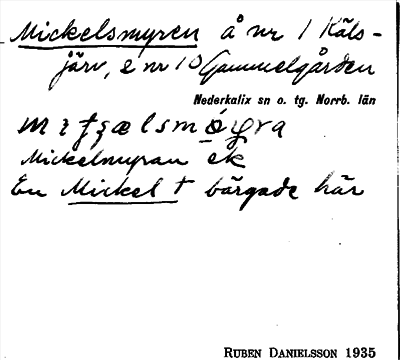 Mickelsmyren å nr 1 Käls-
järv, 2 nr 10 Gammelgården
Nederkalix sn o. tg. Norrb. län
Mickelmyran ek
En Mickel † bärgade här
RUBEN DANIELSSON 1935